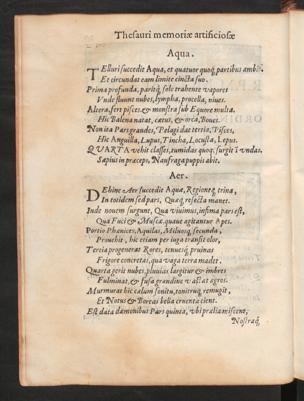 Thesauri memoriæ artificiosæ
Aqua.
TElluri succedit Aqua, et quatuor quoq; partibus
Et circundat eam limite cincta suo.
Prima profunda, paritq; sole trabente vapores
Vnde fluunt nubes, lympha, procella, niues.
Altera fert pisces, & monstra sub Equore multa.
Hic Balena natat, cætus, & orca, Boues.
Non ita Pars grandes, Pelagi dat tertia, Pisces,
Hic Anguilla, Lupus, Tincha, Locusta, Lepus.
QVARTA vehit classes, tumidas quoq; surgit ī vndas.
Sapius in præceps, Naufraga puppis abit.
Aer.
DEhinc Aer succedit Aquæ, Regioneq; trina,
In totidem sed pars, Quæq; resecta manet.
Inde nouem surgunt, Qua viuimus, infima pars est,
Qua Fuci & Muscæ, quaue agitantur
Portio Phœnices, Aquilas, Miluosq; secunda,
Prouehit, hic etiam per iuga transit olor,
Tertia progenerat Rores, tenuesq; pruinas
Frigore concretas, qua vaga terra madet.
Quarta gerit nubes, pluuias largitur & imbres
Fulmina, & fusa grandine vastat agros.
Murmurat hic cælum sonitu, tonitruq; remugit,
Et Notus & Boreas bella cruenta cient.
Est data dæmonibus Pars quinta, vbi prælia miscent,
Nostraq;